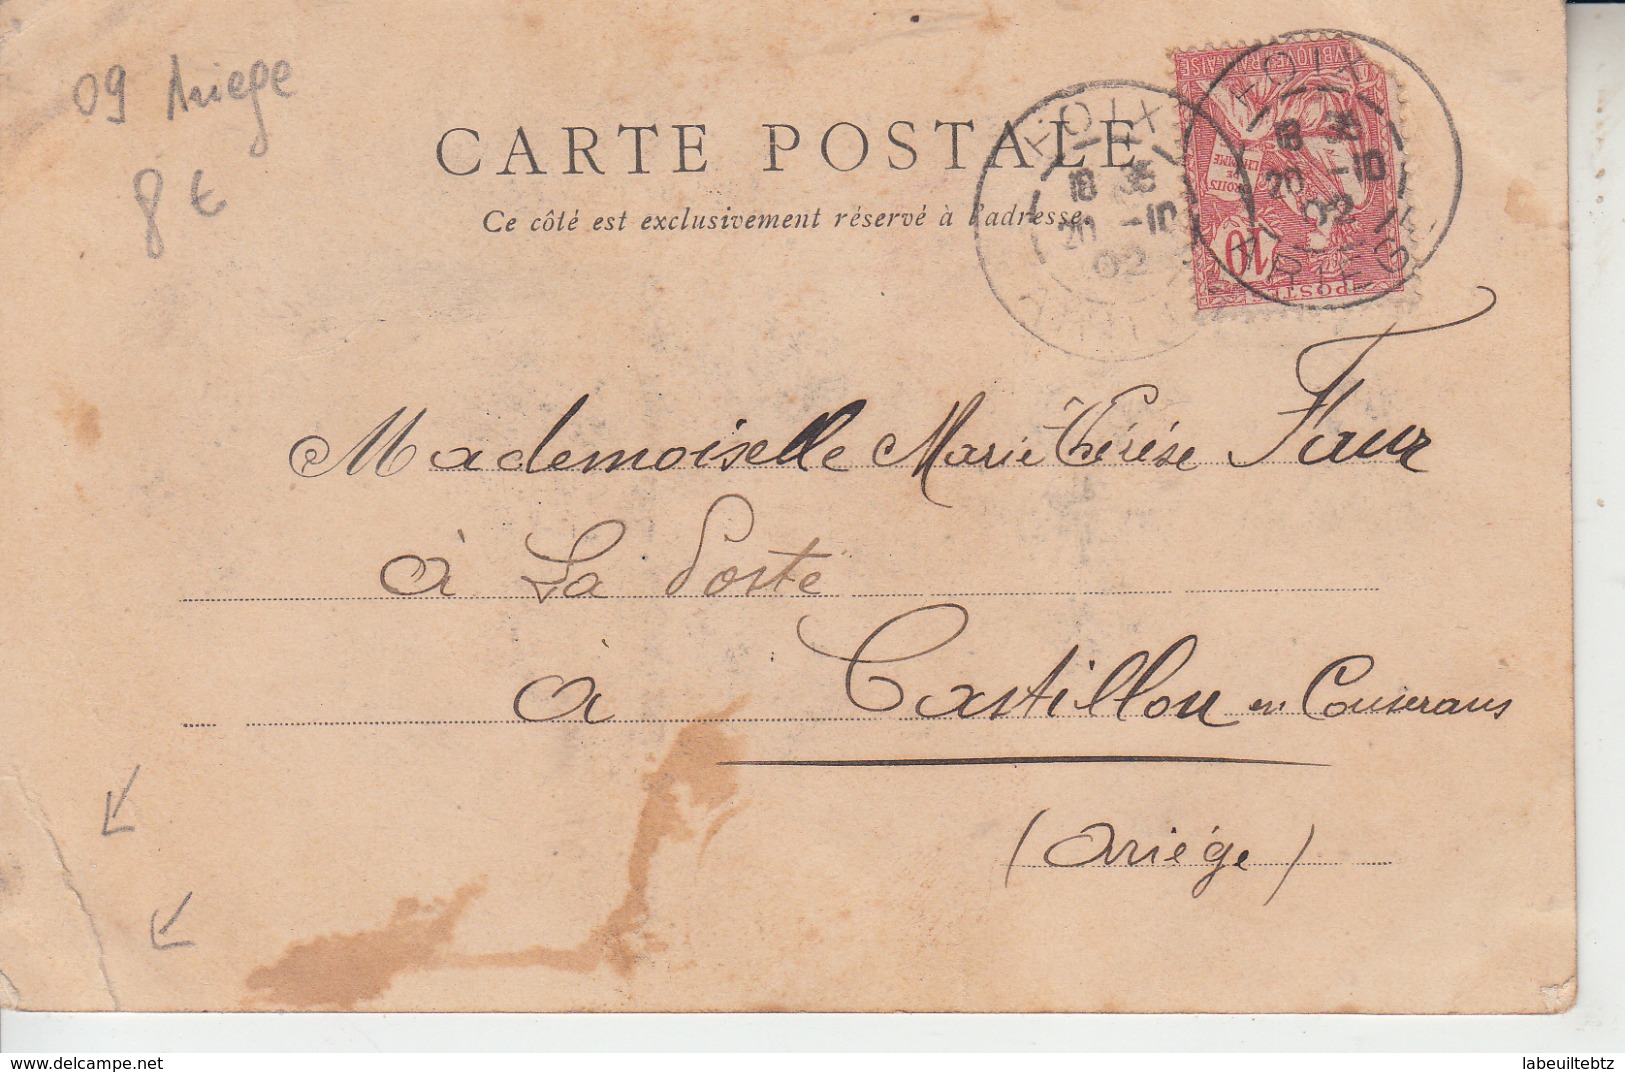 09 Ariege
8 €
CARTE POSTALE
Ce côté est exclusivement réservé à l'adresse.
FOIX
18 35
20 -10
02
ARIEGE
FOIX
18 35
20 -10
02
ARIEGE
REPUBLIQUE FRANÇAISE
DROITS DE L'HOMME
10
POSTES
Mademoiselle Marie Thérèse Faur
à La Poste
à Castillon en Couserans
(Ariége)
www.delcampe.net
labeuiltebtz